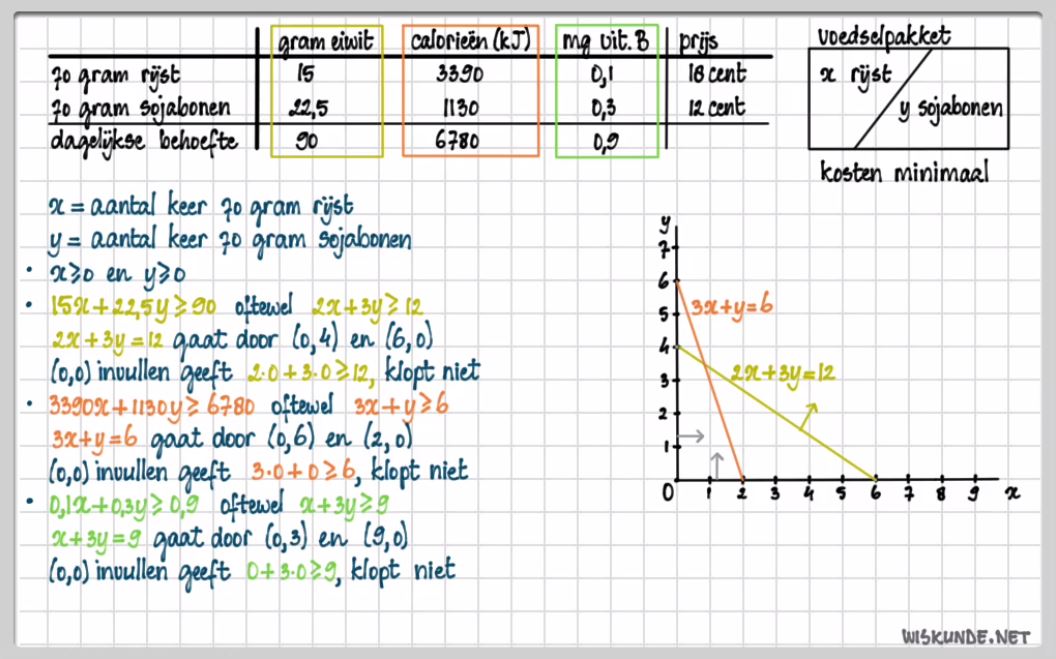 gram eiwit calorieën (kJ) mg vit. B prijs
70 gram rijst 15 3390 0,1 18 cent
70 gram sojabonen 22,5 1130 0,3 12 cent
dagelijkse behoefte 90 6780 0,9
voedselpakket
x rijst
y sojabonen
kosten minimaal
x = aantal keer 70 gram rijst
y = aantal keer 70 gram sojabonen
• x≥0 en y≥0
• 15x+22,5y≥90 oftewel 2x+3y≥12
2x+3y=12 gaat door (0,4) en (6,0)
(0,0) invullen geeft 2·0+3·0≥12, klopt niet
• 3390x+1130y≥6780 oftewel 3x+y≥6
3x+y=6 gaat door (0,6) en (2,0)
(0,0) invullen geeft 3·0+0≥6, klopt niet
• 0,1x+0,3y≥0,9 oftewel x+3y≥9
x+3y=9 gaat door (0,3) en (9,0)
(0,0) invullen geeft 0+3·0≥9, klopt niet
y
7
6
5
4
3
2
1
3x+y=6
2x+3y=12
0 1 2 3 4 5 6 7 8 9 x
WISKUNDE.NET